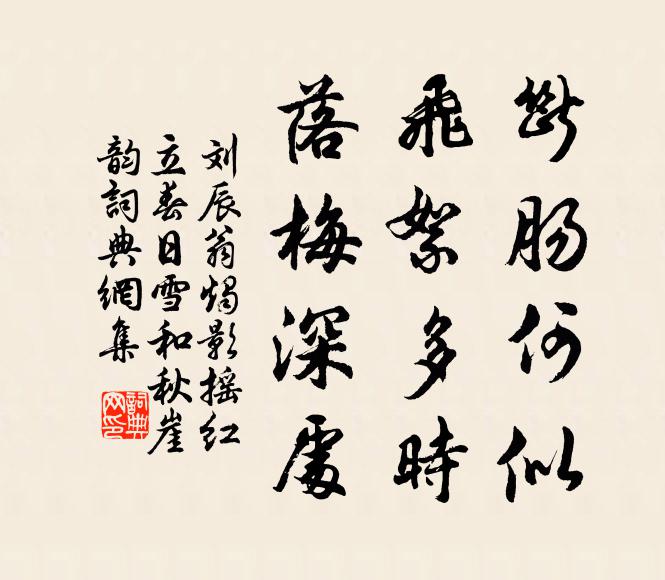 断肠何似
飛絮多時
落梅深處
刘辰翁燭影摇红
立春日雪和秋崖
韵詞典網集
詞典
网印